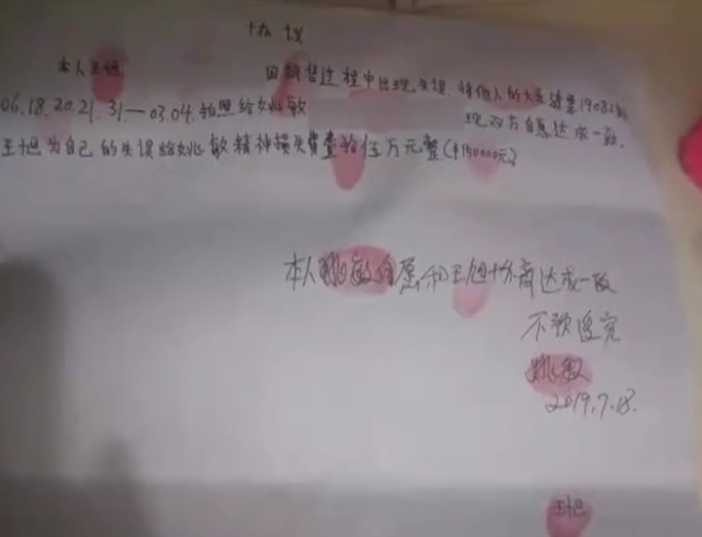 协议
本人王旭 因销售过程中出现失误,将他人的大乐透票19082期
06.18.20.21.31—03.04.拍照给姚敏 现双方自愿达成一致,
王旭为自己的失误给姚敏精神损失费壹拾伍万元整(¥150000元)
本人姚敏自愿和王旭协商达成一致
不予追究
姚敏
2019.7.18.
王旭